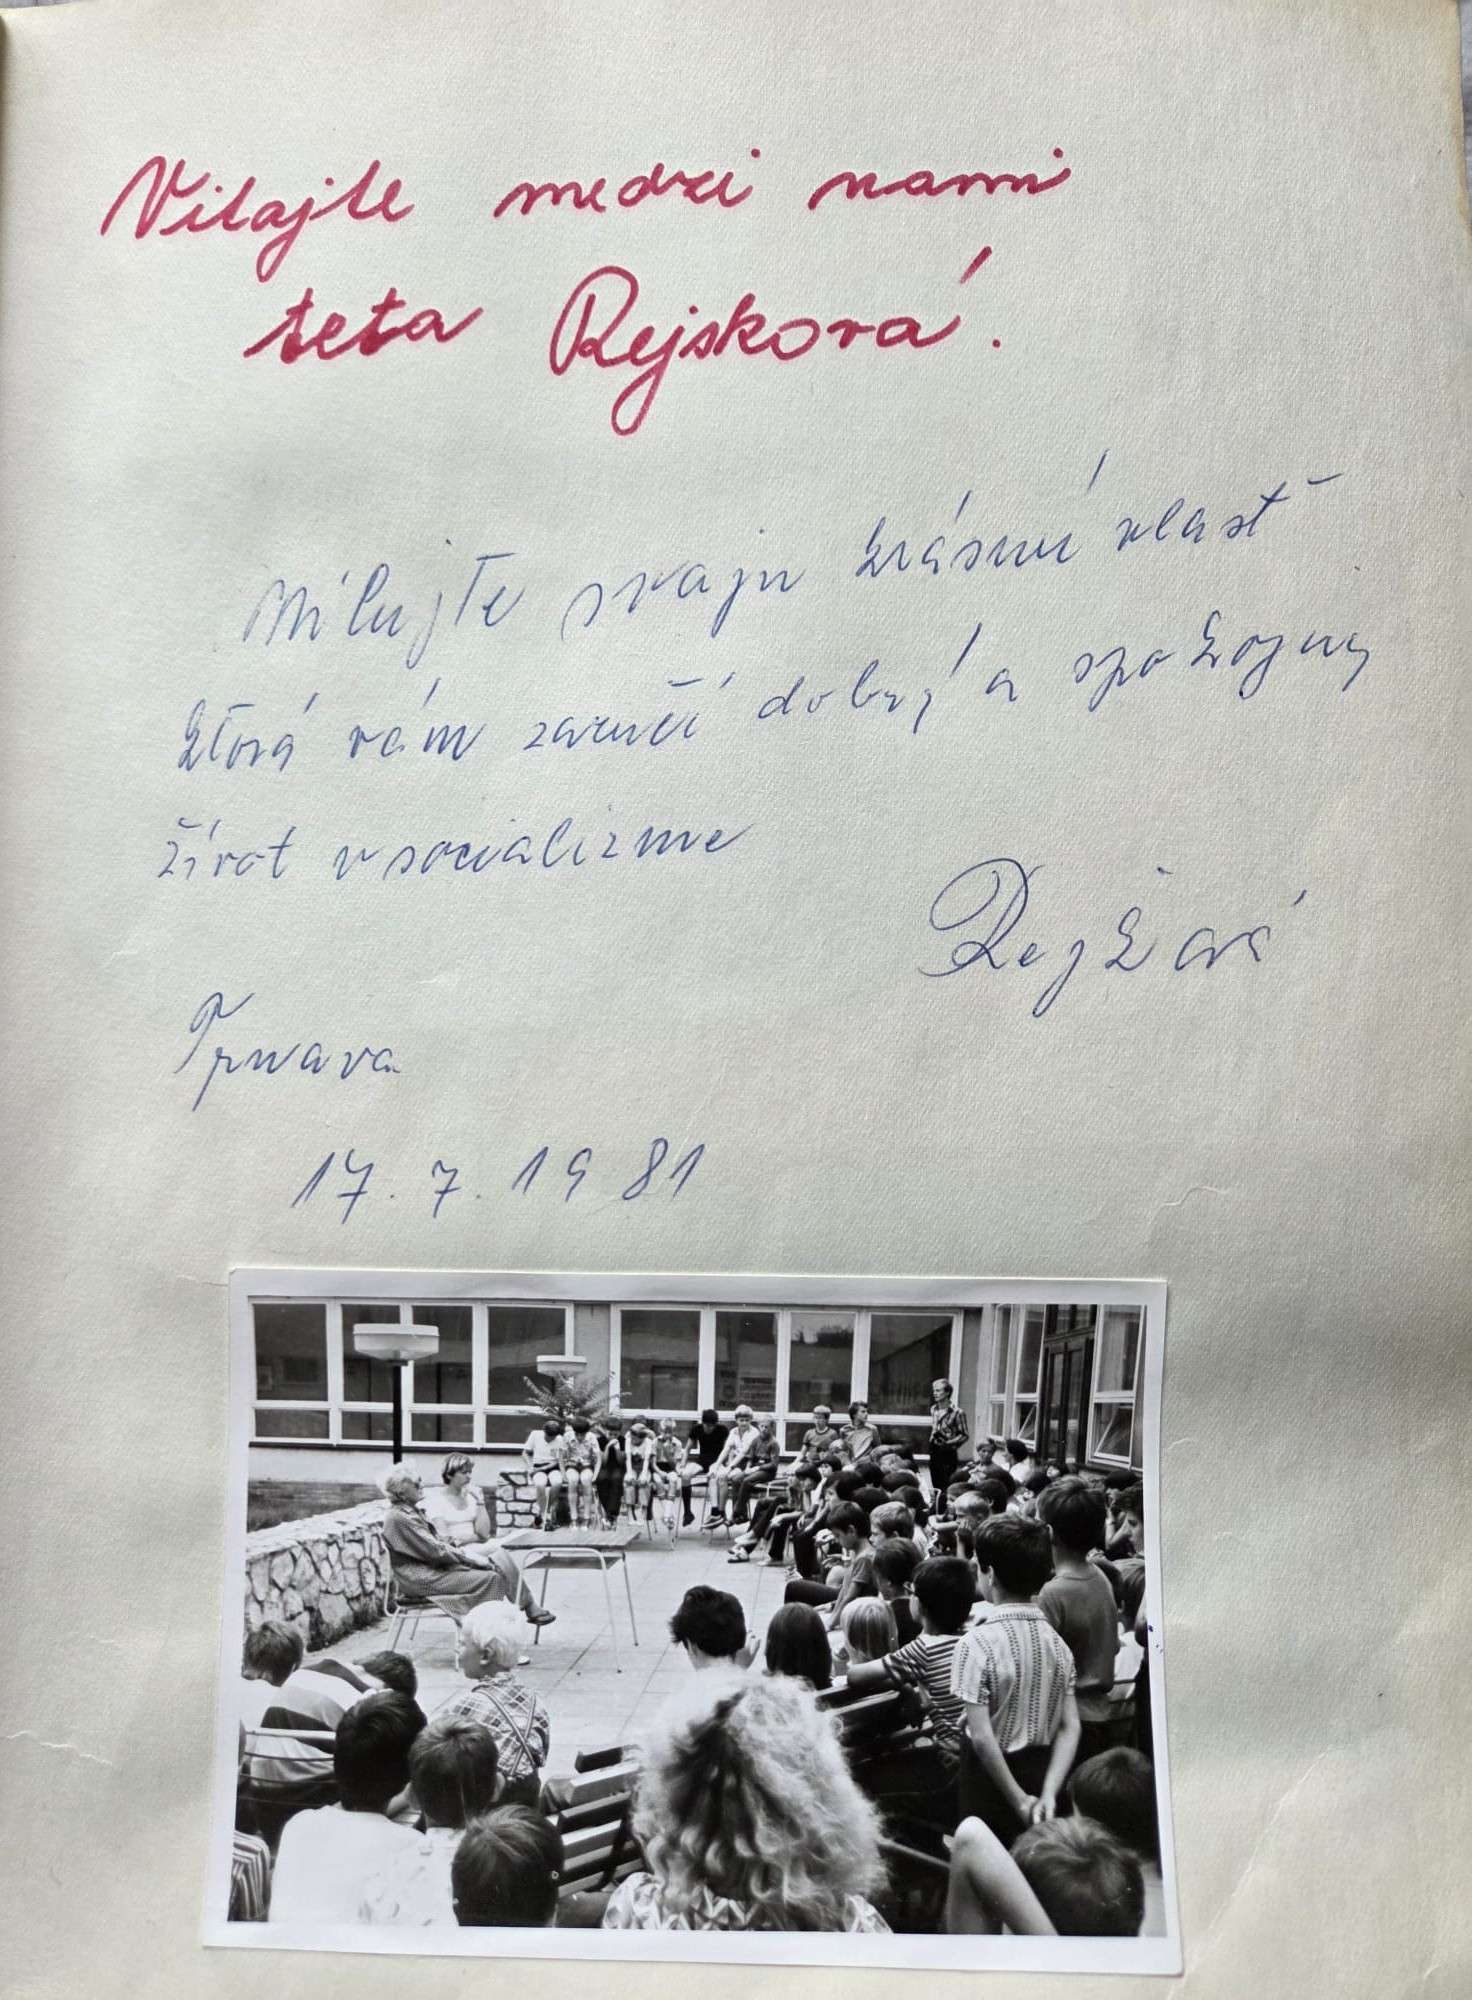 Vitajte medzi nami
teta Rejsková.
Milujte svoju krásnú vlasť
ktorá vám zaručí dobrý a spokojny
život v socializme
Rejková
Trnava
17. 7. 1981